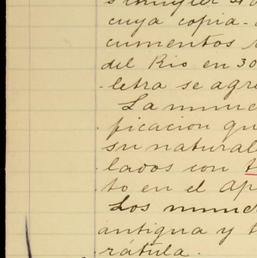 cuya copia
cumentos
del Rio en 30
letra se agre
La mune
ficacion qu
su natural
lados con
to en el ap
Los munec
antigua y t
rátula.